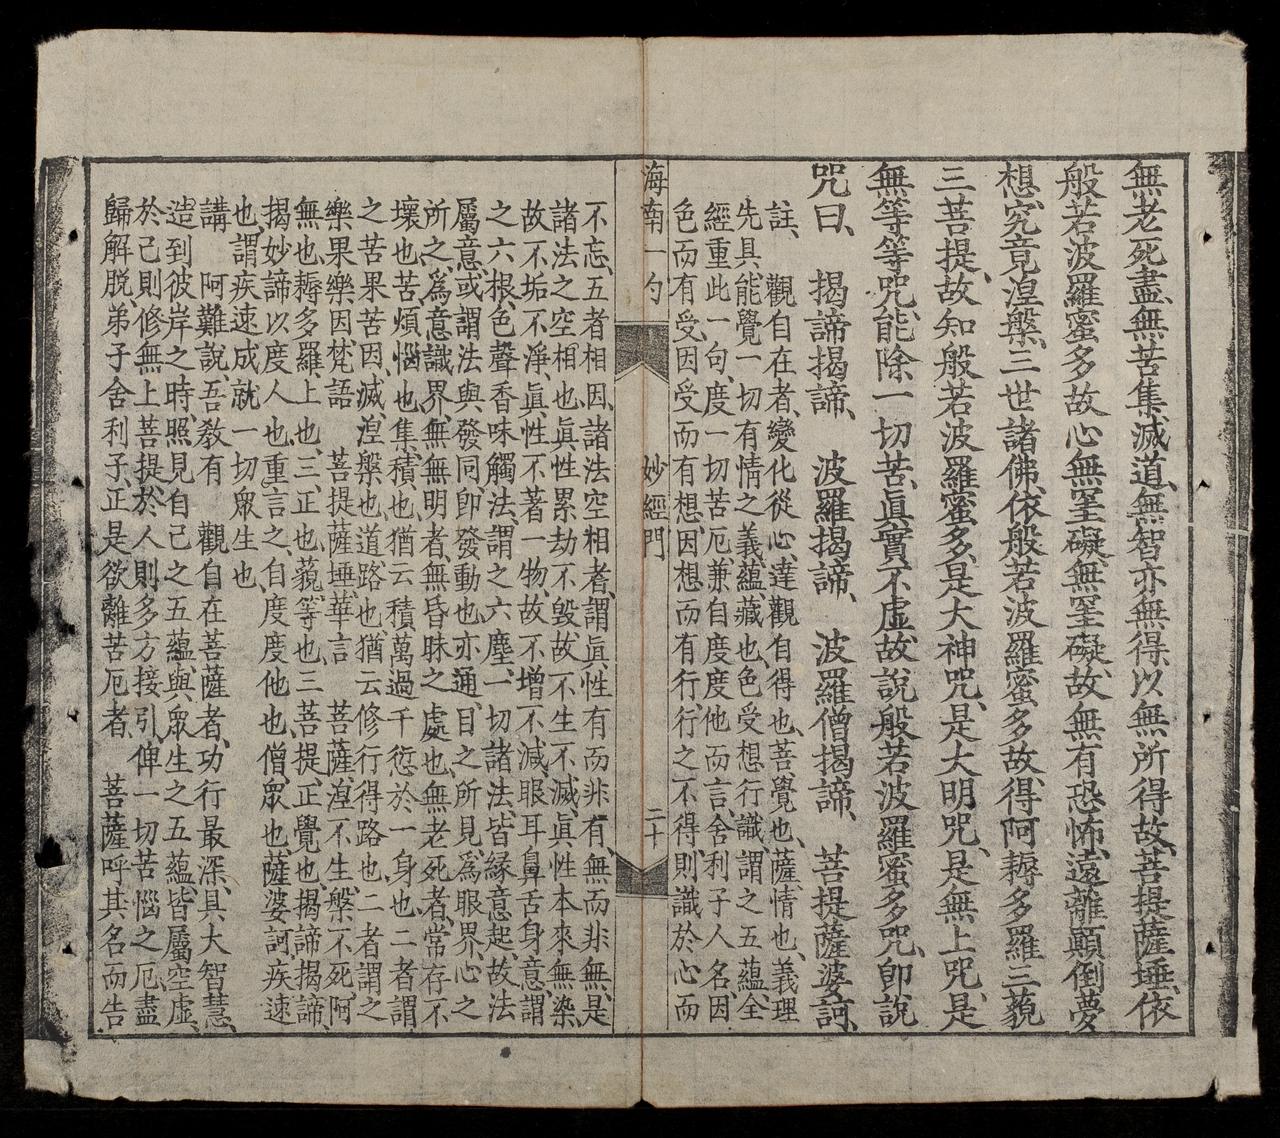 無老死盡、無苦集滅道、無智亦無得、以無所得故、菩提薩埵、依
般若波羅蜜多故、心無罣礙、無罣礙故、無有恐怖、遠離顚倒夢
想、究竟涅槃、三世諸佛、依般若波羅蜜多故、得阿耨多羅三藐
三菩提、故知般若波羅蜜多、是大神咒、是大明咒、是無上咒、是
無等等咒、能除一切苦、眞實不虛、故說般若波羅蜜多咒、卽說
咒曰、　揭諦揭諦、　波羅揭諦、　波羅僧揭諦、　菩提薩婆訶、
註、　觀自在者、變化從心、達觀自得也、菩、覺也、薩、情也、義理
先具、能覺一切有情之義、蘊、藏也、色受想行識、謂之五蘊、全
經重此一句、度一切苦厄、兼自度度他而言、舍利子人名、因
色而有受、因受而有想、因想而有行、行之不得、則識於心而
海南一勺　妙經門　二十
不忘、五者相因、諸法空相者、謂眞性有而非有、無而非無、是
諸法之空相也、眞性累劫不毀、故不生不滅、眞性本來無染、
故不垢不淨、眞性不著一物、故不增不減、眼耳鼻舌身意、謂
之六根、色聲香味觸法、謂之六塵、一切諸法、皆緣意起、故法
屬意、或謂法與發同、卽發動也、亦通、目之所見爲眼界、心之
所之、爲意識界、無無明者、無昏昧之處也、無老死者、常存不
壞也、苦、煩惱也、集、積也、猶云積萬過千愆於一身也、二者謂
之苦果苦因、滅、涅槃也、道、路也、猶云修行得路也、二者謂之
樂果樂因、梵語　菩提薩埵、華言　菩薩、涅不生、槃不死、阿
無也、耨多羅、上也、三、正也、藐、等也、三菩提、正覺也、揭諦揭諦、
揭妙諦以度人也、重言之、自度度他也、僧、眾也、薩婆訶、疾速
也、謂疾速成就一切眾生也、
講　阿難說、吾教有　觀自在菩薩者、功行最深、具大智慧、
造到彼岸之時、照見自己之五蘊、與眾生之五蘊、皆屬空虛、
於己則修無上菩提、於人則多方接引、俾一切苦惱之厄、盡
歸解脫、弟子舍利子、正是欲離苦厄者、　菩薩呼其名而告